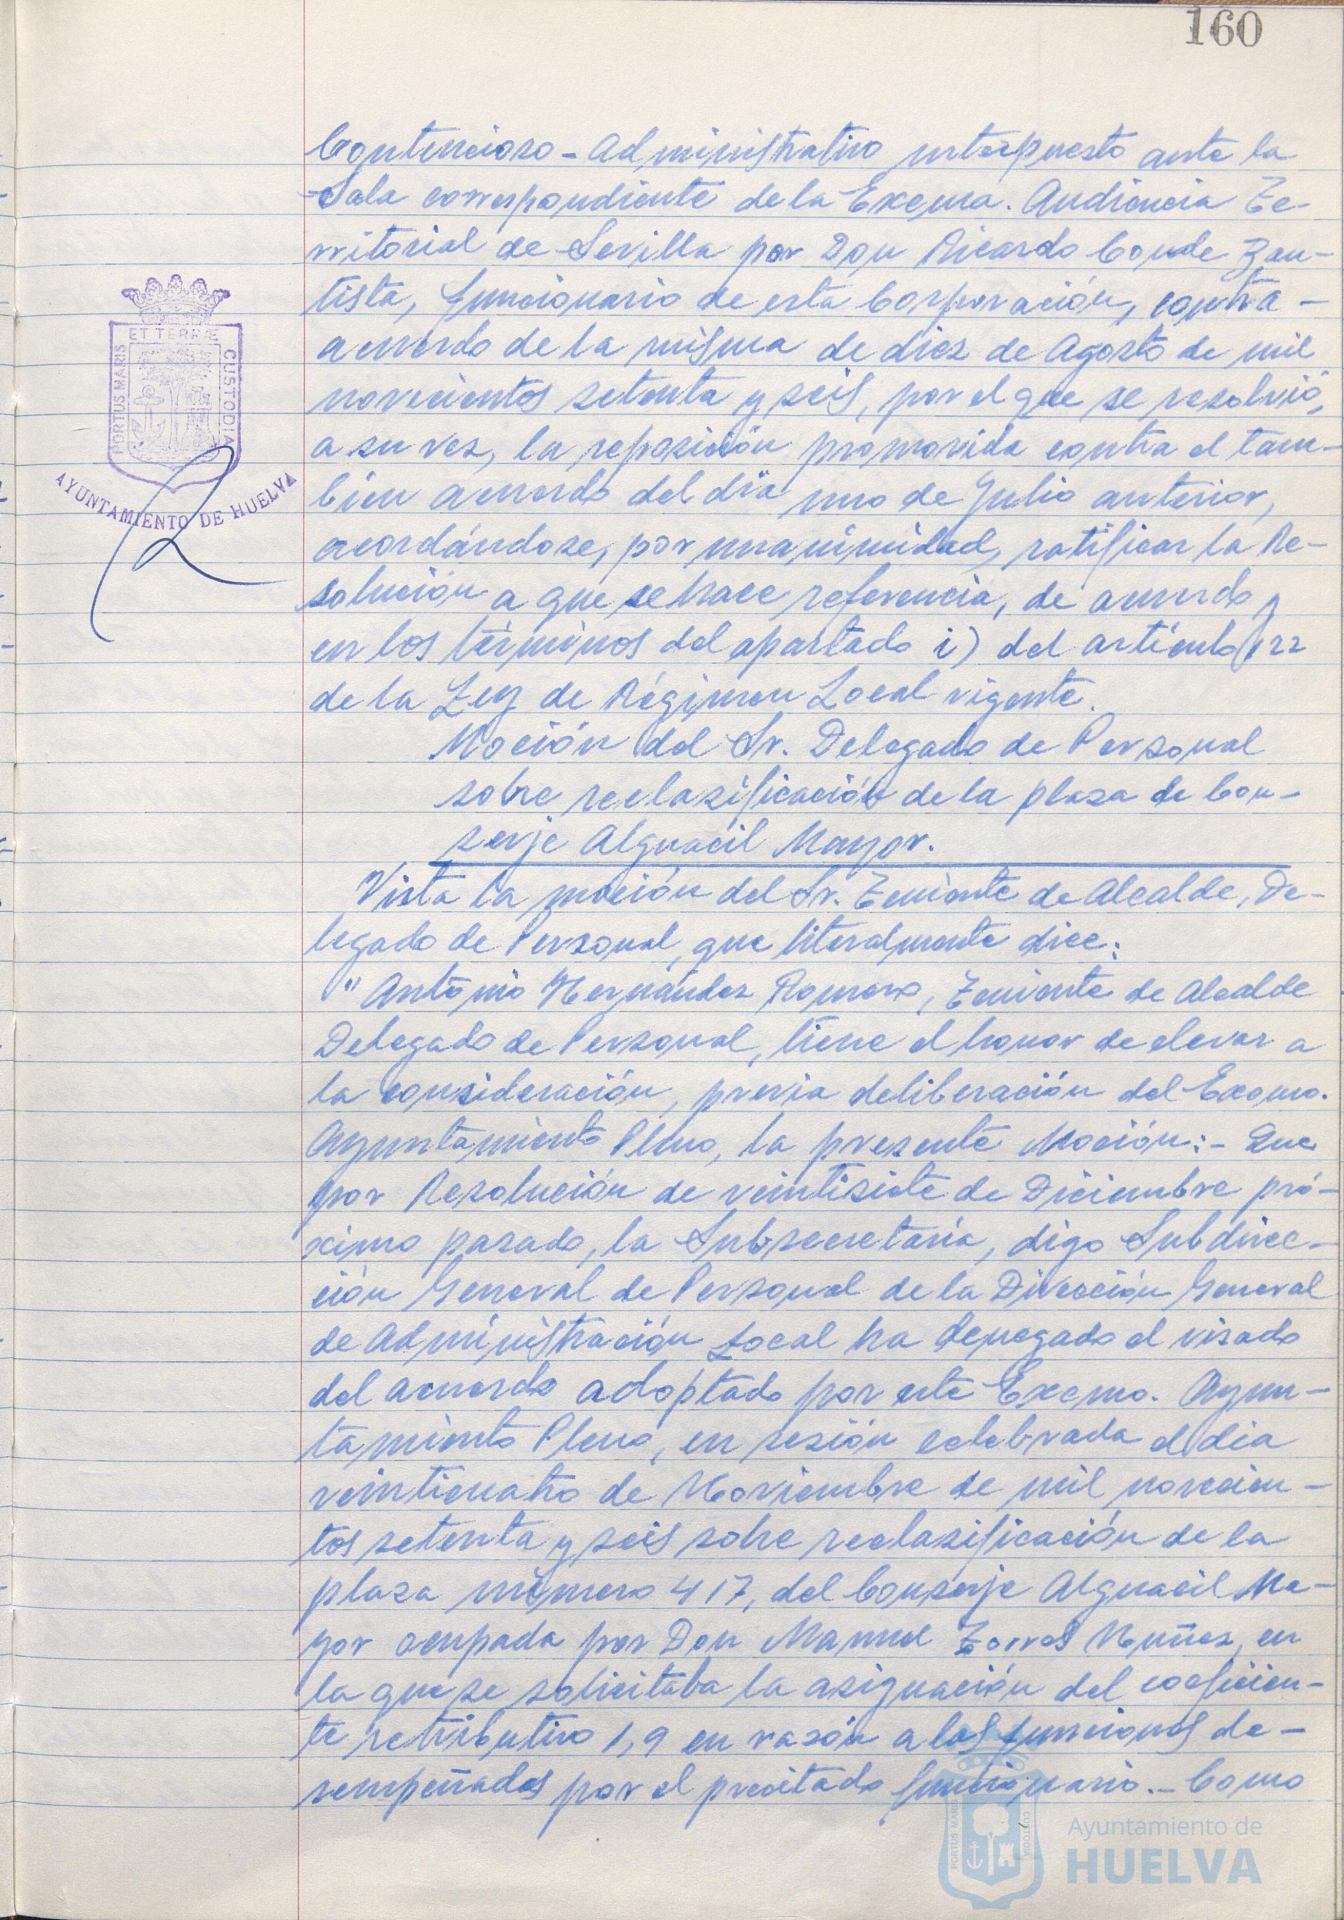 160
Contencioso-Administrativo interpuesto ante la
Sala correspondiente de la Excma. Audiencia Te-
rritorial de Sevilla por Don Ricardo Conde Bau-
tista, funcionario de esta Corporación, contra
acuerdo de la misma de diez de Agosto de mil
novecientos setenta y seis, por el que se resolvió,
a su vez, la reposición promovida contra el tam-
bien acuerdo del día uno de Julio anterior,
acordándose, por unanimidad, ratificar la Re-
solución a que se hace referencia, de acuerdo
en los términos del apartado i) del artículo 122
de la Ley de Régimen Local vigente.
Moción del Sr. Delegado de Personal
sobre reclasificación de la plaza de Con-
serje Alguacil Mayor.
Vista la moción del Sr. Teniente de Alcalde, De-
legado de Personal, que literalmente dice:
"Antonio Hernández Romero, Teniente de Alcalde
Delegado de Personal, tiene el honor de elevar a
la consideración, previa deliberación del Excmo.
Ayuntamiento Pleno, la presente Moción:- Que
por Resolución de veintisiete de Diciembre pró-
ximo pasado, la Subsecretaría, digo Subdirec-
ción General de Personal de la Dirección General
de Administración Local ha denegado el visado
del acuerdo adoptado por este Excmo. Ayun-
tamiento Pleno, en sesión celebrada el dia
veinticuatro de Noviembre de mil novecien-
tos setenta y seis sobre reclasificación de la
plaza número 417, del Conserje Alguacil Ma-
yor ocupada por Don Manuel Torres Nuñez, en
la que se solicitaba la asignación del coeficien-
te retributivo 1,9 en razón a las funciones de-
sempeñadas por el precitado funcionario.- Como
PORTUS MARIS ET TERRÆ CUSTODIA
AYUNTAMIENTO DE HUELVA
PORTUS MARIS CUSTODIA
Ayuntamiento de
HUELVA